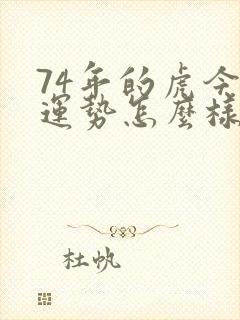 74年的虎今
運勢怎麼樣
杜帆